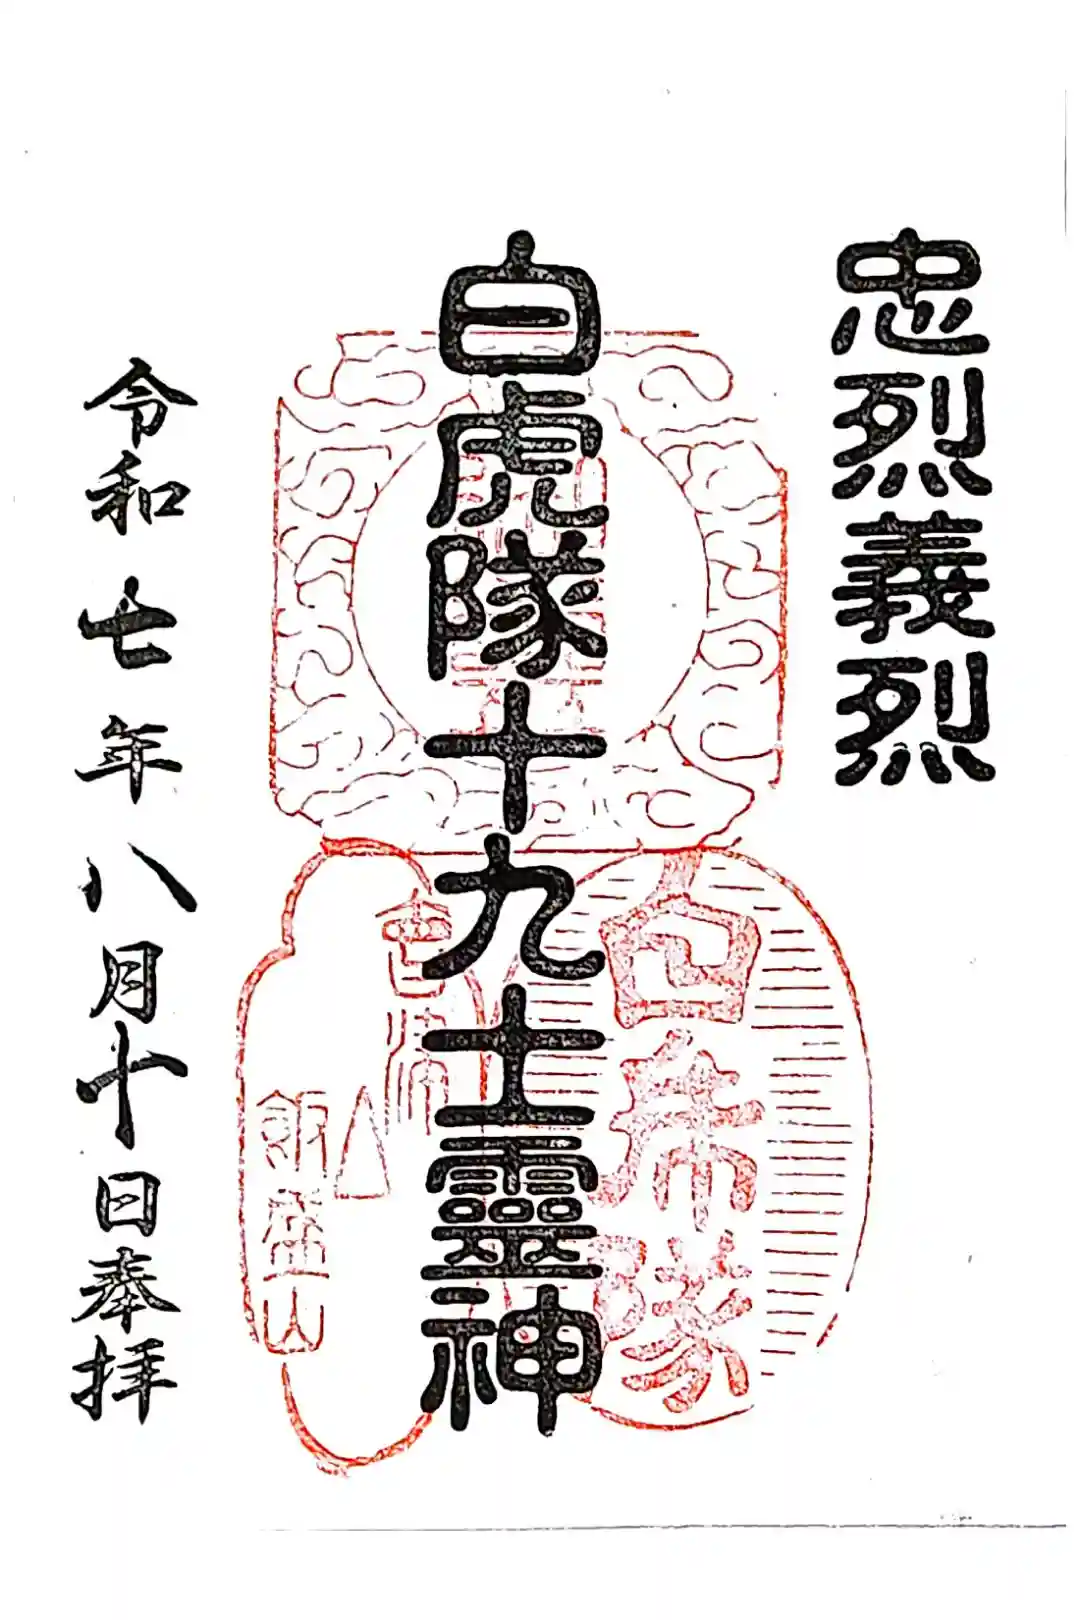 忠烈義烈
白虎隊十九士靈神
白虎隊
飯盛山
令和七年八月十日奉拝